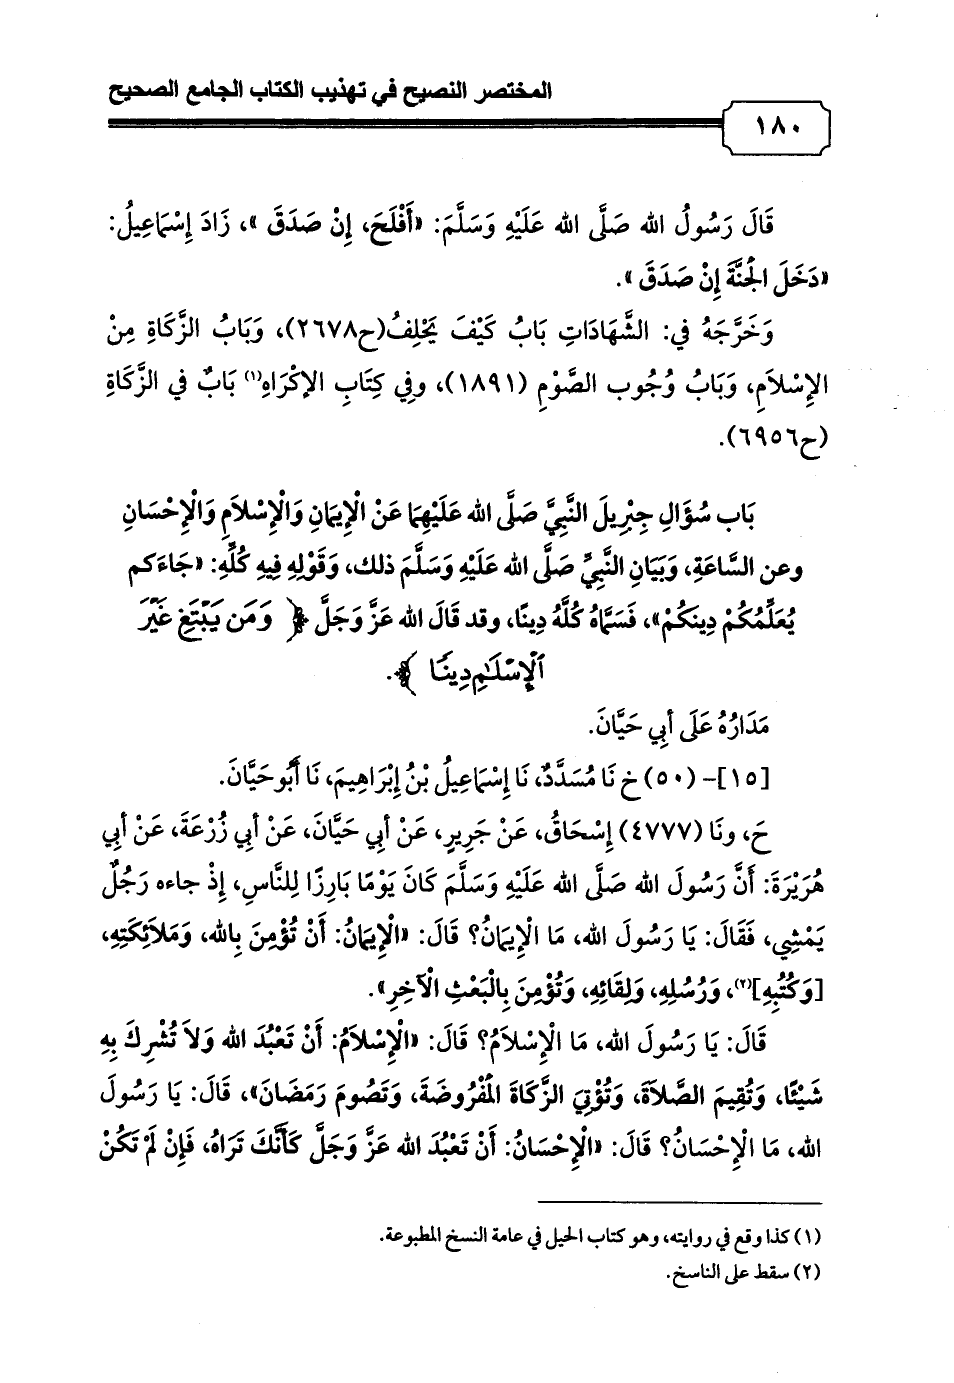 المختصر النصيح في تهذيب الكتاب الجامع الصحيح
١٨٠
قَالَ رَسُولُ الله صَلَّى الله عَلَيْهِ وَسَلَّمَ: «أَفْلَحَ، إِنْ صَدَقَ»، زَادَ إِسْمَاعِيلُ:
«دَخَلَ الْجَنَّةَ إِنْ صَدَقَ».
وَخَرَّجَهُ في: الشَّهَادَاتِ بَابُ كَيْفَ يَحْلِفُ(ح٢٦٧٨)، وَبَابُ الزَّكَاةِ مِنْ
الإِسْلاَمِ، وَبَابُ وُجُوب الصَّوْمِ (١٨٩١)، وفِي كِتَابِ الإكْرَاهِ(١) بَابٌ في الزَّكَاةِ
(ح٦٩٥٦).
بَاب سُؤَالِ جِبْرِيلَ النَّبِيَّ صَلَّى الله عَلَيْهِمَا عَنْ الْإِيمَانِ وَالْإِسْلَامِ وَالْإِحْسَانِ
وعن السَّاعَةِ، وَبَيَانِ النَّبِيِّ صَلَّى الله عَلَيْهِ وَسَلَّمَ ذلك، وَقَوْلِهِ فِيهِ كُلِّهِ: «جَاءَكم
يُعَلِّمُكُمْ دِينَكُمْ»، فَسَمَّاهُ كُلَّهُ دِينًا، وقد قَالَ الله عَزَّ وَجَلَّ ﴿ وَمَن يَبْتَغِ غَيْرَ
ٱلْإِسْلَٰمِ دِينًا ﴾.
مَدَارُهُ عَلَى أبِي حَيَّانَ.
[١٥]- (٥٠) خ نَا مُسَدَّدٌ، نَا إِسْمَاعِيلُ بْنُ إِبْرَاهِيمَ، نَا أَبُو حَيَّانَ.
حَ، ونَا (٤٧٧٧) إِسْحَاقُ، عَنْ جَرِيرٍ، عَنْ أبِي حَيَّانَ، عَنْ أبِي زُرْعَةَ، عَنْ أبِي
هُرَيْرَةَ: أَنَّ رَسُولَ الله صَلَّى الله عَلَيْهِ وَسَلَّمَ كَانَ يَوْمًا بَارِزًا لِلنَّاسِ، إِذْ جاءه رَجُلٌ
يَمْشِي، فَقَالَ: يَا رَسُولَ الله، مَا الْإِيمَانُ؟ قَالَ: «الْإِيمَانُ: أَنْ تُؤْمِنَ بِالله، وَمَلَائِكَتِهِ،
[وَكُتُبِهِ](٢)، وَرُسُلِهِ، وَلِقَائِهِ، وَتُؤْمِنَ بِالْبَعْثِ الْآخِرِ».
قَالَ: يَا رَسُولَ الله، مَا الْإِسْلَامُ؟ قَالَ: «الْإِسْلَامُ: أَنْ تَعْبُدَ الله وَلاَ تُشْرِكَ بِهِ
شَيْئًا، وَتُقِيمَ الصَّلاَةَ، وَتُؤْتِيَ الزَّكَاةَ الْمَفْرُوضَةَ، وَتَصُومَ رَمَضَانَ»، قَالَ: يَا رَسُولَ
الله، مَا الْإِحْسَانُ؟ قَالَ: «الْإِحْسَانُ: أَنْ تَعْبُدَ الله عَزَّ وَجَلَّ كَأَنَّكَ تَرَاهُ، فَإِنْ لَمْ تَكُنْ
(١) كذا وقع في روايته، وهو كتاب الحيل في عامة النسخ المطبوعة.
(٢) سقط على الناسخ.